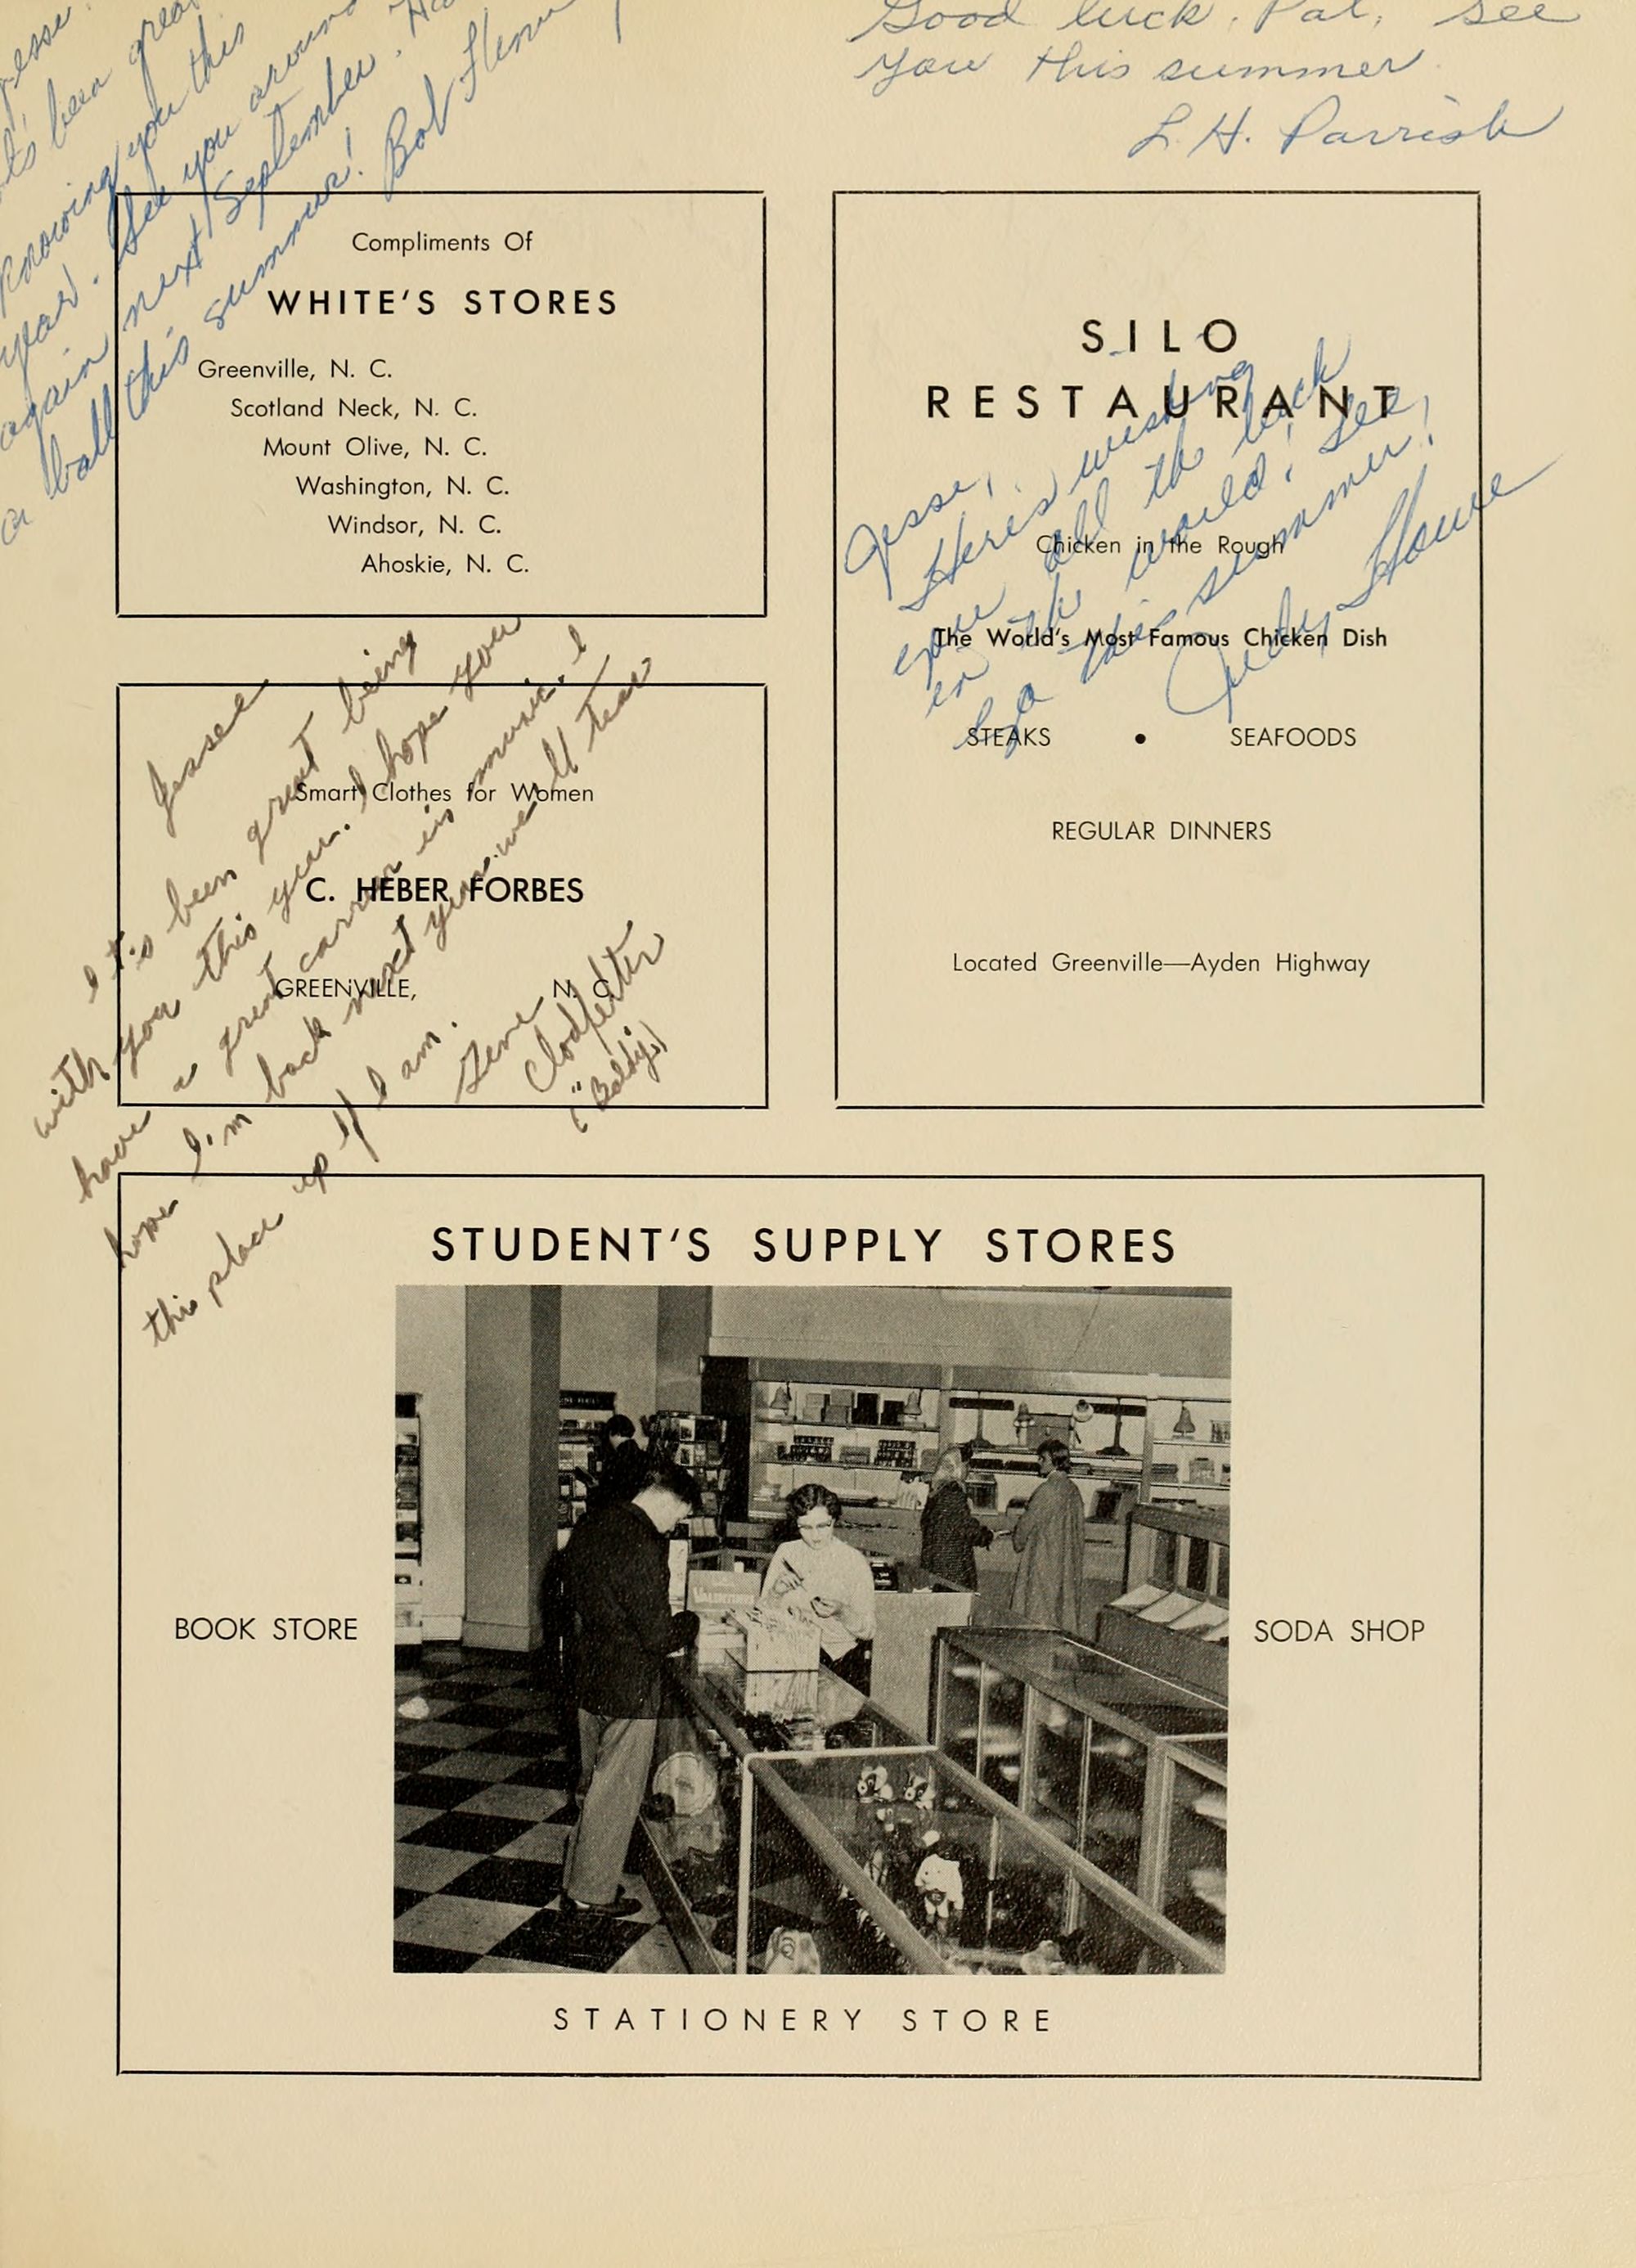 Jesse,
It's been great
knowing you this
year. See you around
again next September. Have
a ball this summer! Bob
Good luck, Pat, See
you this summer.
L. H. Parrish
Compliments Of
WHITE'S STORES
Greenville, N. C.
Scotland Neck, N. C.
Mount Olive, N. C.
Washington, N. C.
Windsor, N. C.
Ahoskie, N. C.
SILO
RESTAURANT
Chicken in the Rough
The World's Most Famous Chicken Dish
STEAKS • SEAFOODS
REGULAR DINNERS
Located Greenville—Ayden Highway
Jesse,
Here's wishing
you all the luck
in the world! See
ya this summer!
Judy
Smart Clothes for Women
C. HEBER FORBES
GREENVILLE, N. C.
Jesse
It's been great being
with you this year. I hope you
have a great carreer in music. I
hope I'm back next year. we'll tear
this place up if I am.
Gene
Clodfelter
("Baldy")
STUDENT'S SUPPLY STORES
BOOK STORE
SODA SHOP
STATIONERY STORE